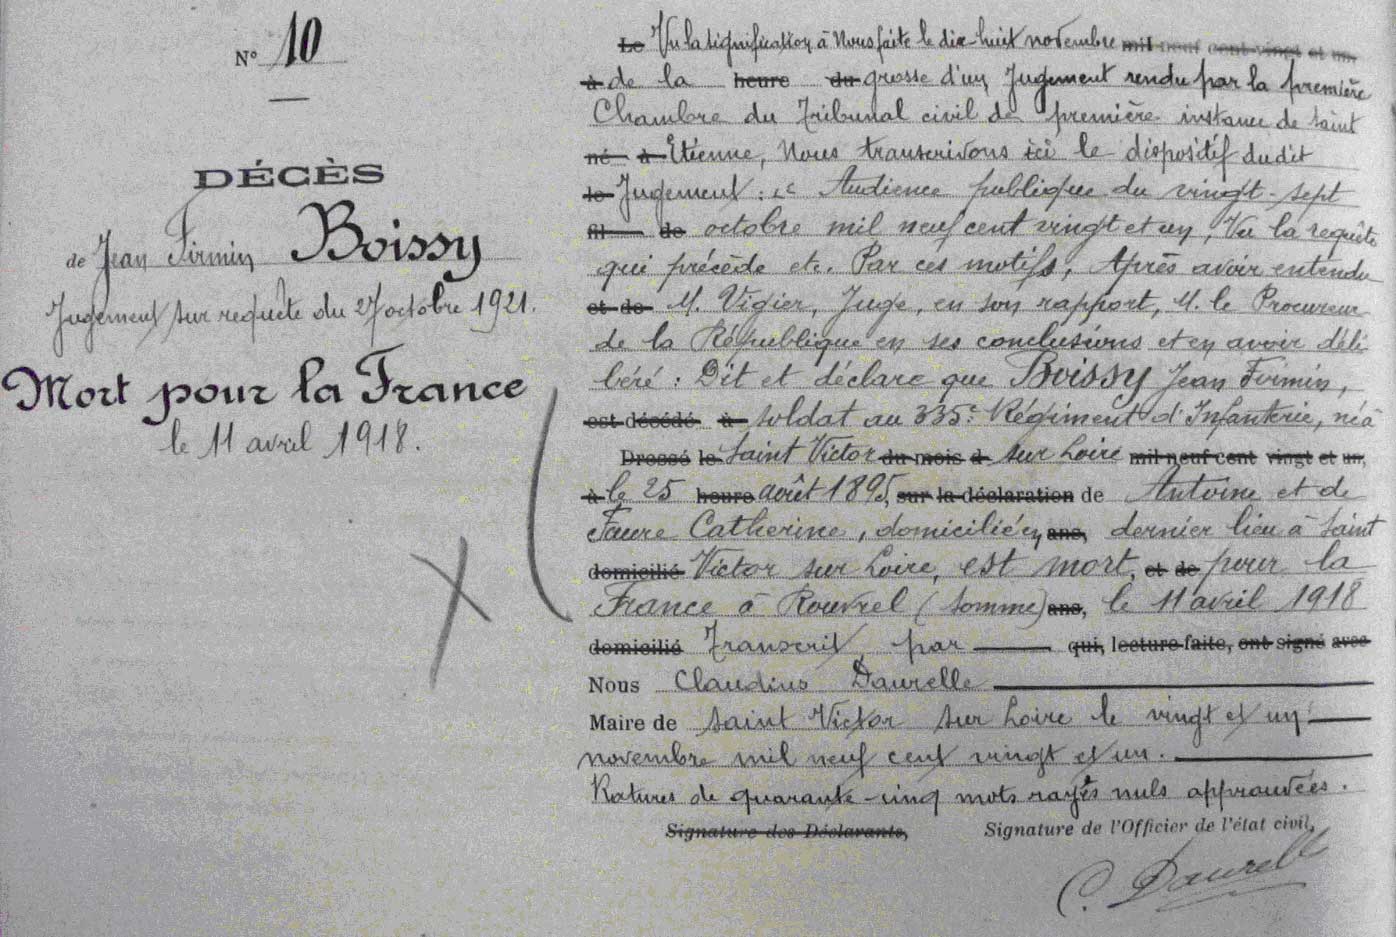 N° 10
DÉCÈS
de Jean Firmin Boissy
Jugement sur requête du 27 octobre 1921.
Mort pour la France
le 11 avril 1918.
Le Vu la signification à Nous faite le dix-huit novembre mil neuf cent vingt et un
à de la heure du grosse d'un Jugement rendu par la première
Chambre du Tribunal civil de première instance de Saint
né à Etienne, Nous transcrivons ici le dispositif dudit
le Jugement : " Audience publique du vingt-sept
fil de octobre mil neuf cent vingt et un, Vu la requête
qui précède etc. Par ces motifs, Après avoir entendu
et de M. Vigier, Juge, en son rapport, M. le Procureur
de la République en ses conclusions et en avoir déli
béré : Dit et déclare que Boissy Jean Firmin,
est décédé à soldat au 335e Régiment d'Infanterie, né à
Dressé le Saint Victor du mois d sur Loire mil neuf cent vingt et un,
à le 25 heure août 1895, sur la déclaration de Antoine et de
Faure Catherine, domicilié en ans, dernier lieu à Saint
domicilié Victor sur Loire, est mort, et de pour la
France à Rouvrel (Somme) ans, le 11 avril 1918
domicilié Transcrit, par qui, lecture faite, ont signé avec
Nous Claudius Daurelle
Maire de Saint Victor sur Loire le vingt et un
novembre mil neuf cent vingt et un.
Ratures de quarante-cinq mots rayés nuls approuvées.
Signature des Déclarants, Signature de l'Officier de l'état civil,
C. Daurelle